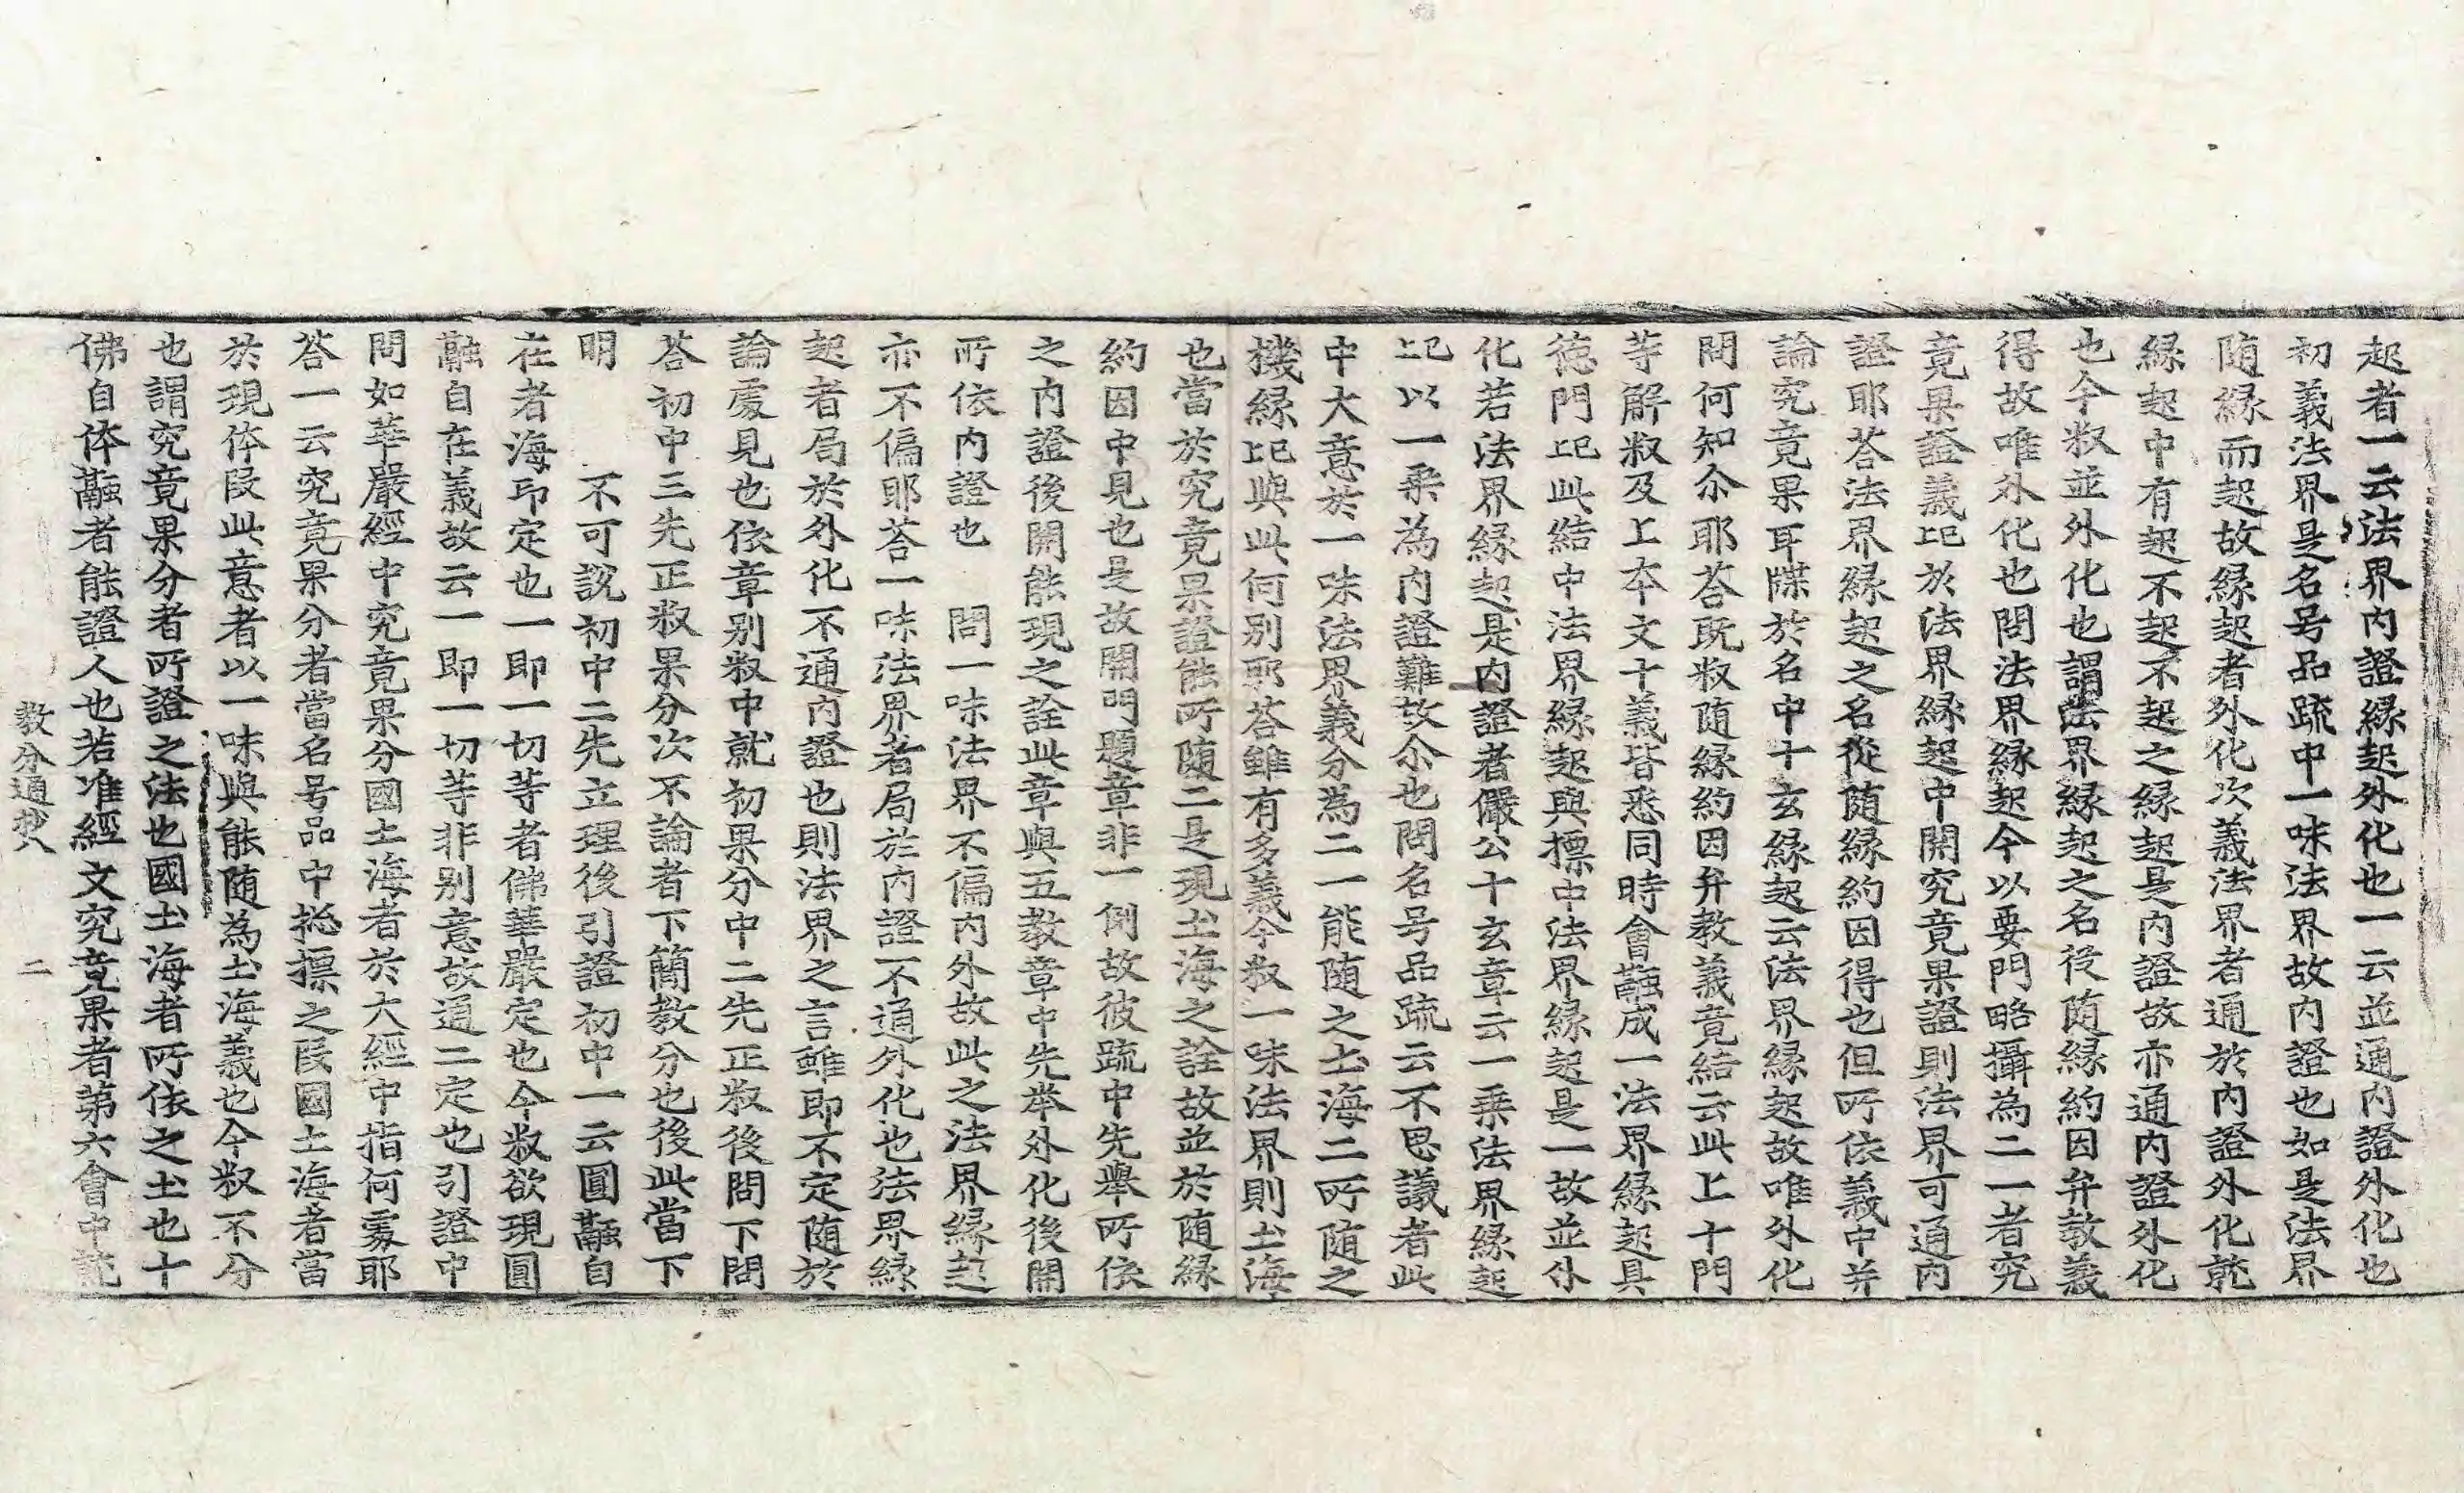 起者一云法界內證緣起外化也一云並通內證外化也
初義法界是名号品䟽中一味法界故內證也如是法界
随緣而起故緣起者外化次義法界者通於內證外化就
緣起中有起不起不起之緣起是內證故亦通內證外化
也今叙並外化也謂法界緣起之名從随緣約因弁教義
得故唯外化也問法界緣起今以要門略攝為二一者究
竟果證義㔾於法界緣起中開究竟果證則法界可通內
證耶荅法界緣起之名從随緣約因得也但所依義中并
論究竟果耳牒於名中十玄緣起云法界緣起故唯外化
問何知尒耶荅既叙随緣約因弁教義竟結云此上十門
等解叙及上本文十義皆悉同時會融成一法界緣起具
德門㔾此結中法界緣起與摽中法界緣起是一故並外
化若法界緣起是內證者儼公十玄章云一乘法界緣起
㔾以一乘為內證難故尒也問名号品䟽云不思議者此
中大意於一味法界義分為二一能随之土海二所随之
機緣㔾與此何別耶荅雖有多義今叙一味法界則土海
也當於究竟果證能所随二是現土海之詮故並於随緣
約因中見也是故開門題章非一例故彼䟽中先舉所依
之內證後開能現之詮此章與五教章中先举外化後開
所依內證也　問一味法界不偏內外故此之法界緣起
亦不偏耶荅一味法界者局於內證不通外化也法界緣
起者局於外化不通內證也則法界之言雖即不定随於
論處見也依章別叙中就初果分中二先正叙後問下問
荅初中三先正叙果分次不論者下簡教分也後此當下
明　　不可說初中二先立理後引證初中一云圓融自
在者海印定也一即一切等者佛華嚴定也今叙欲現圓
融自在義故云一即一切等非別意故通二定也引證中
問如華嚴經中究竟果分國土海者於大經中指何處耶
荅一云究竟果分者當名号品中捴摽之叚國土海者當
於現体叚此意者以一味與能随為土海義也今叙不分
也謂究竟果分者所證之法也國土海者所依之土也十
佛自体融者能證人也若准經文究竟果者第六會中說
教分通抄八　　二